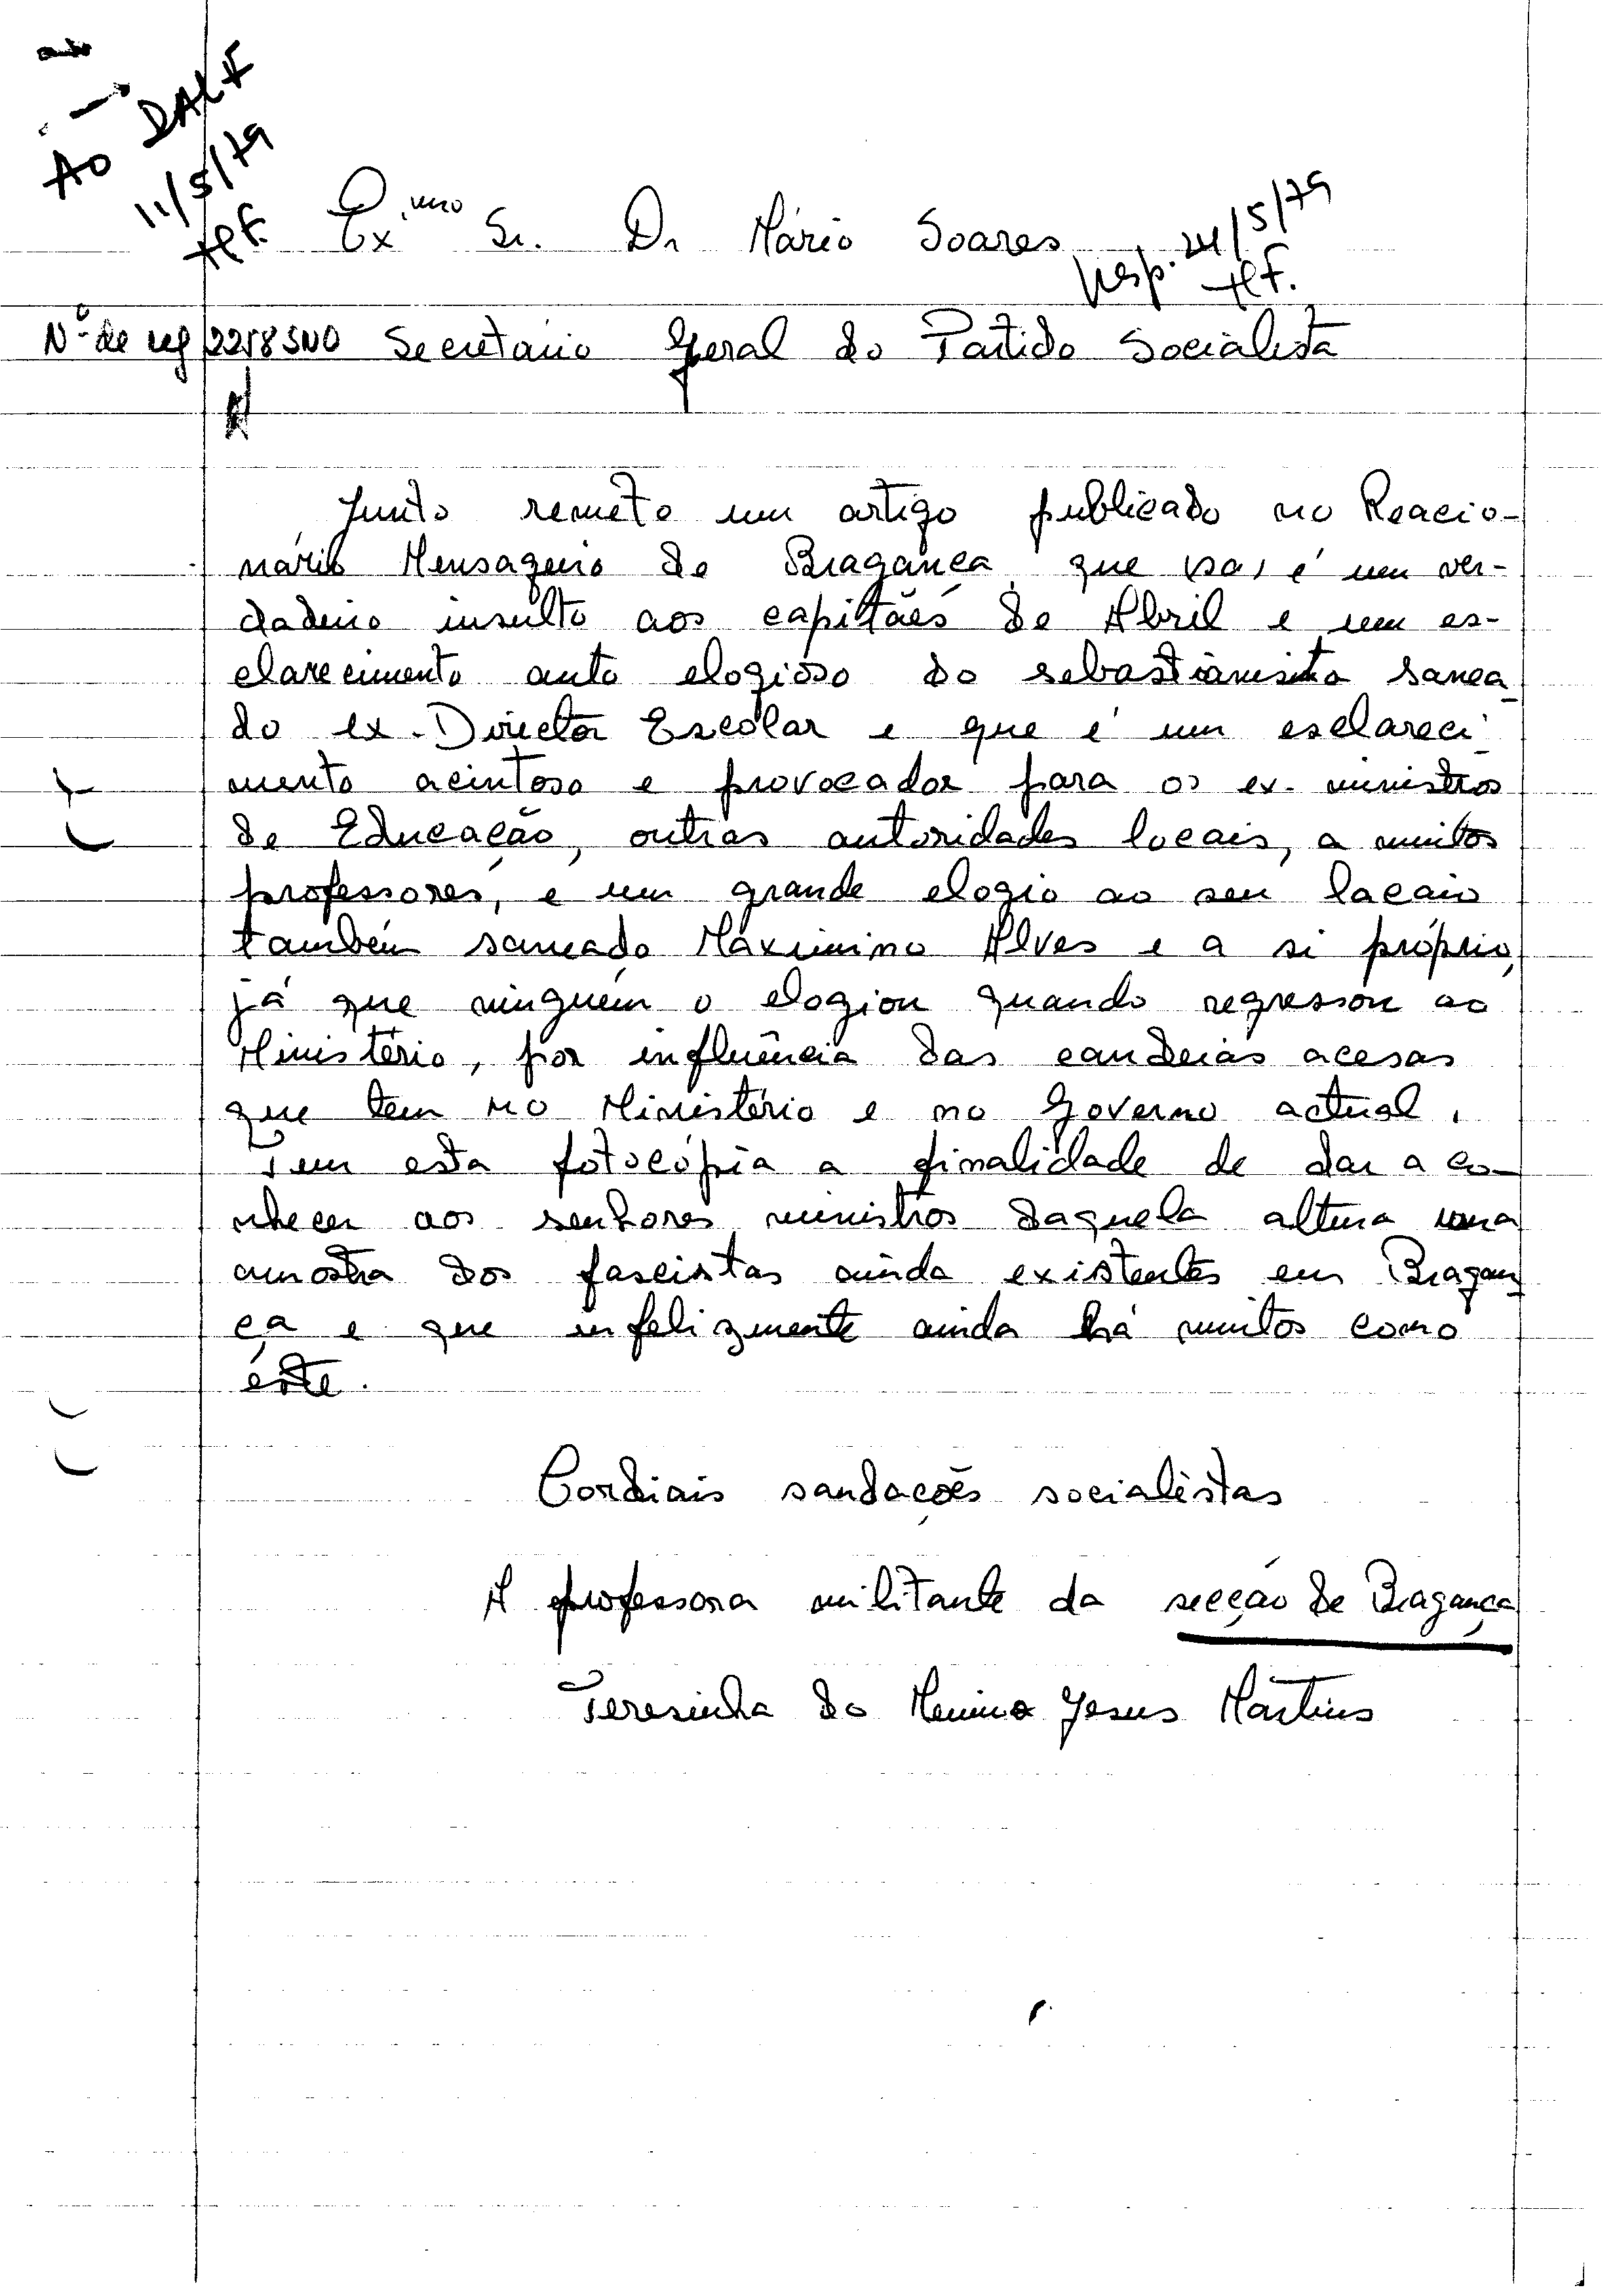 Ao DALF
11/5/79
Ex.mo Sr. Dr Mário Soares
Resp. 24/5/79
Nº de reg 2218SNO Secretário Geral do Partido Socialista
Junto remeto um artigo publicado no Reacio-
nário Mensageiro de Bragança que é um ver-
dadeiro insulto aos capitães de Abril e um es-
clarecimento auto elogioso do sebastianista sanea
do ex-Director Escolar e que é um esclareci-
mento acintoso e provocador para os ex-ministros
de Educação, outras autoridades locais, a muitos
professores, e um grande elogio ao seu lacaio
também saneado Máximino Alves e a si próprio,
já que ninguém o elogiou quando regressou ao
Ministério, por influência das candeias acesas
que tem no Ministério e no Governo actual.
Tem esta fotocópia a finalidade de dar a co-
nhecer aos senhores ministros daquela altura uma
amostra dos fascistas ainda existentes em Bragan-
ça e que infelizmente ainda há muitos como
éste.
Cordiais saudações socialistas
A professora militante da secção de Bragança
Teresinha do Menino Jesus Martins